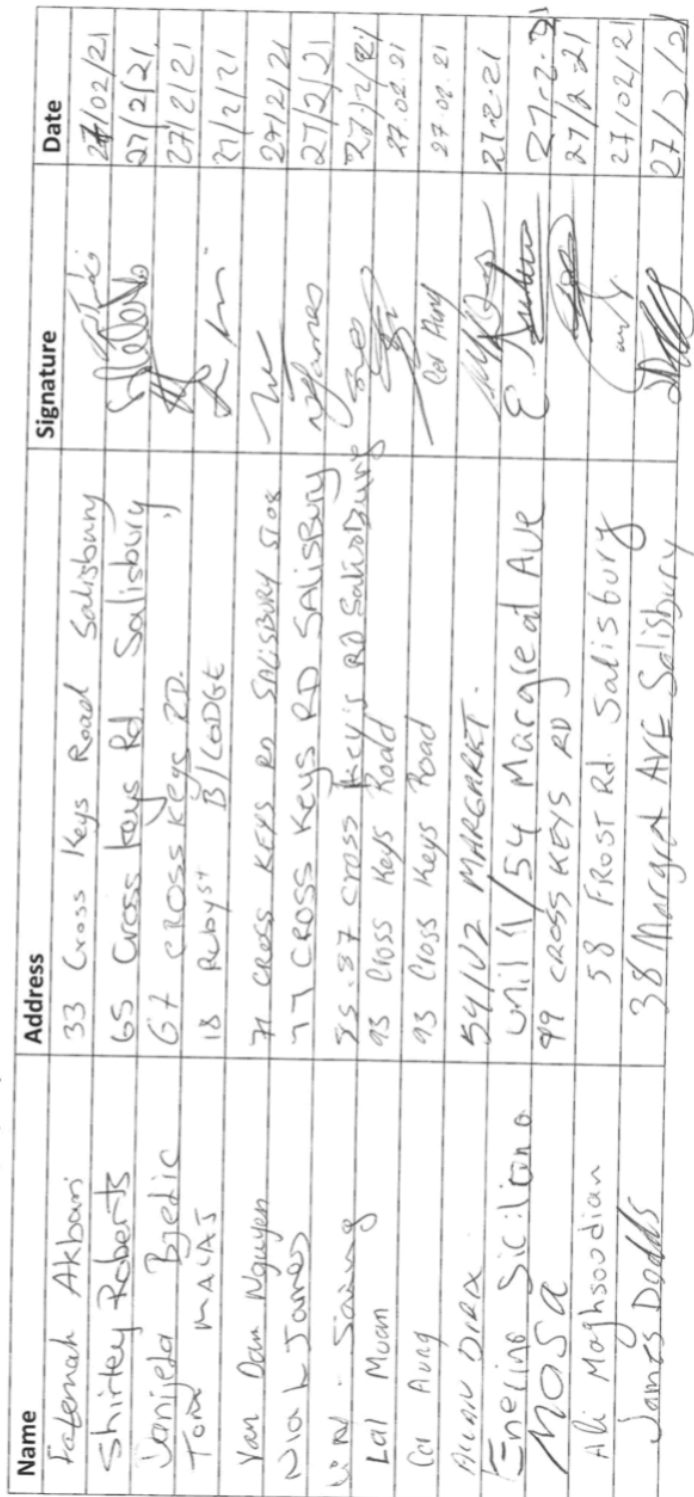 Name Address Signature Date
Fatemah Akbari 33 Cross Keys Road Salisbury 27/02/21
Shirley Roberts 65 Cross keys Rd. Salisbury 27/2/21
Danijela Bjedic 67 CROSS KEYS RD. 27/2/21
Tom MALAJ 18 Ruby St B/LODGE 27/2/21
Van Dan Nguyen 71 CROSS KEYS RD SALISBURY 5108 27/2/21
Nick James 77 CROSS Keys RD SALISBURY NJames 27/2/21
CROSS Key's RD 27/2/21
Lal Muan 93 Cross Keys Road 27.02.21
Cer Aung 93 Cross Keys Road Cer Aung 27.02.21
ALLAN DIRIX 54/U2 MARGARET. 27.2.21
Eneling Siciliano Unit 1/54 Margreat AVE 27.2.21
MOSA 99 CROSS KEYS RD 27/2.21
Ali Maghsoudian 58 FROST Rd. Salisbury 27/02/21
James Dodds 38 Margret AVE Salisbury 27/2/21